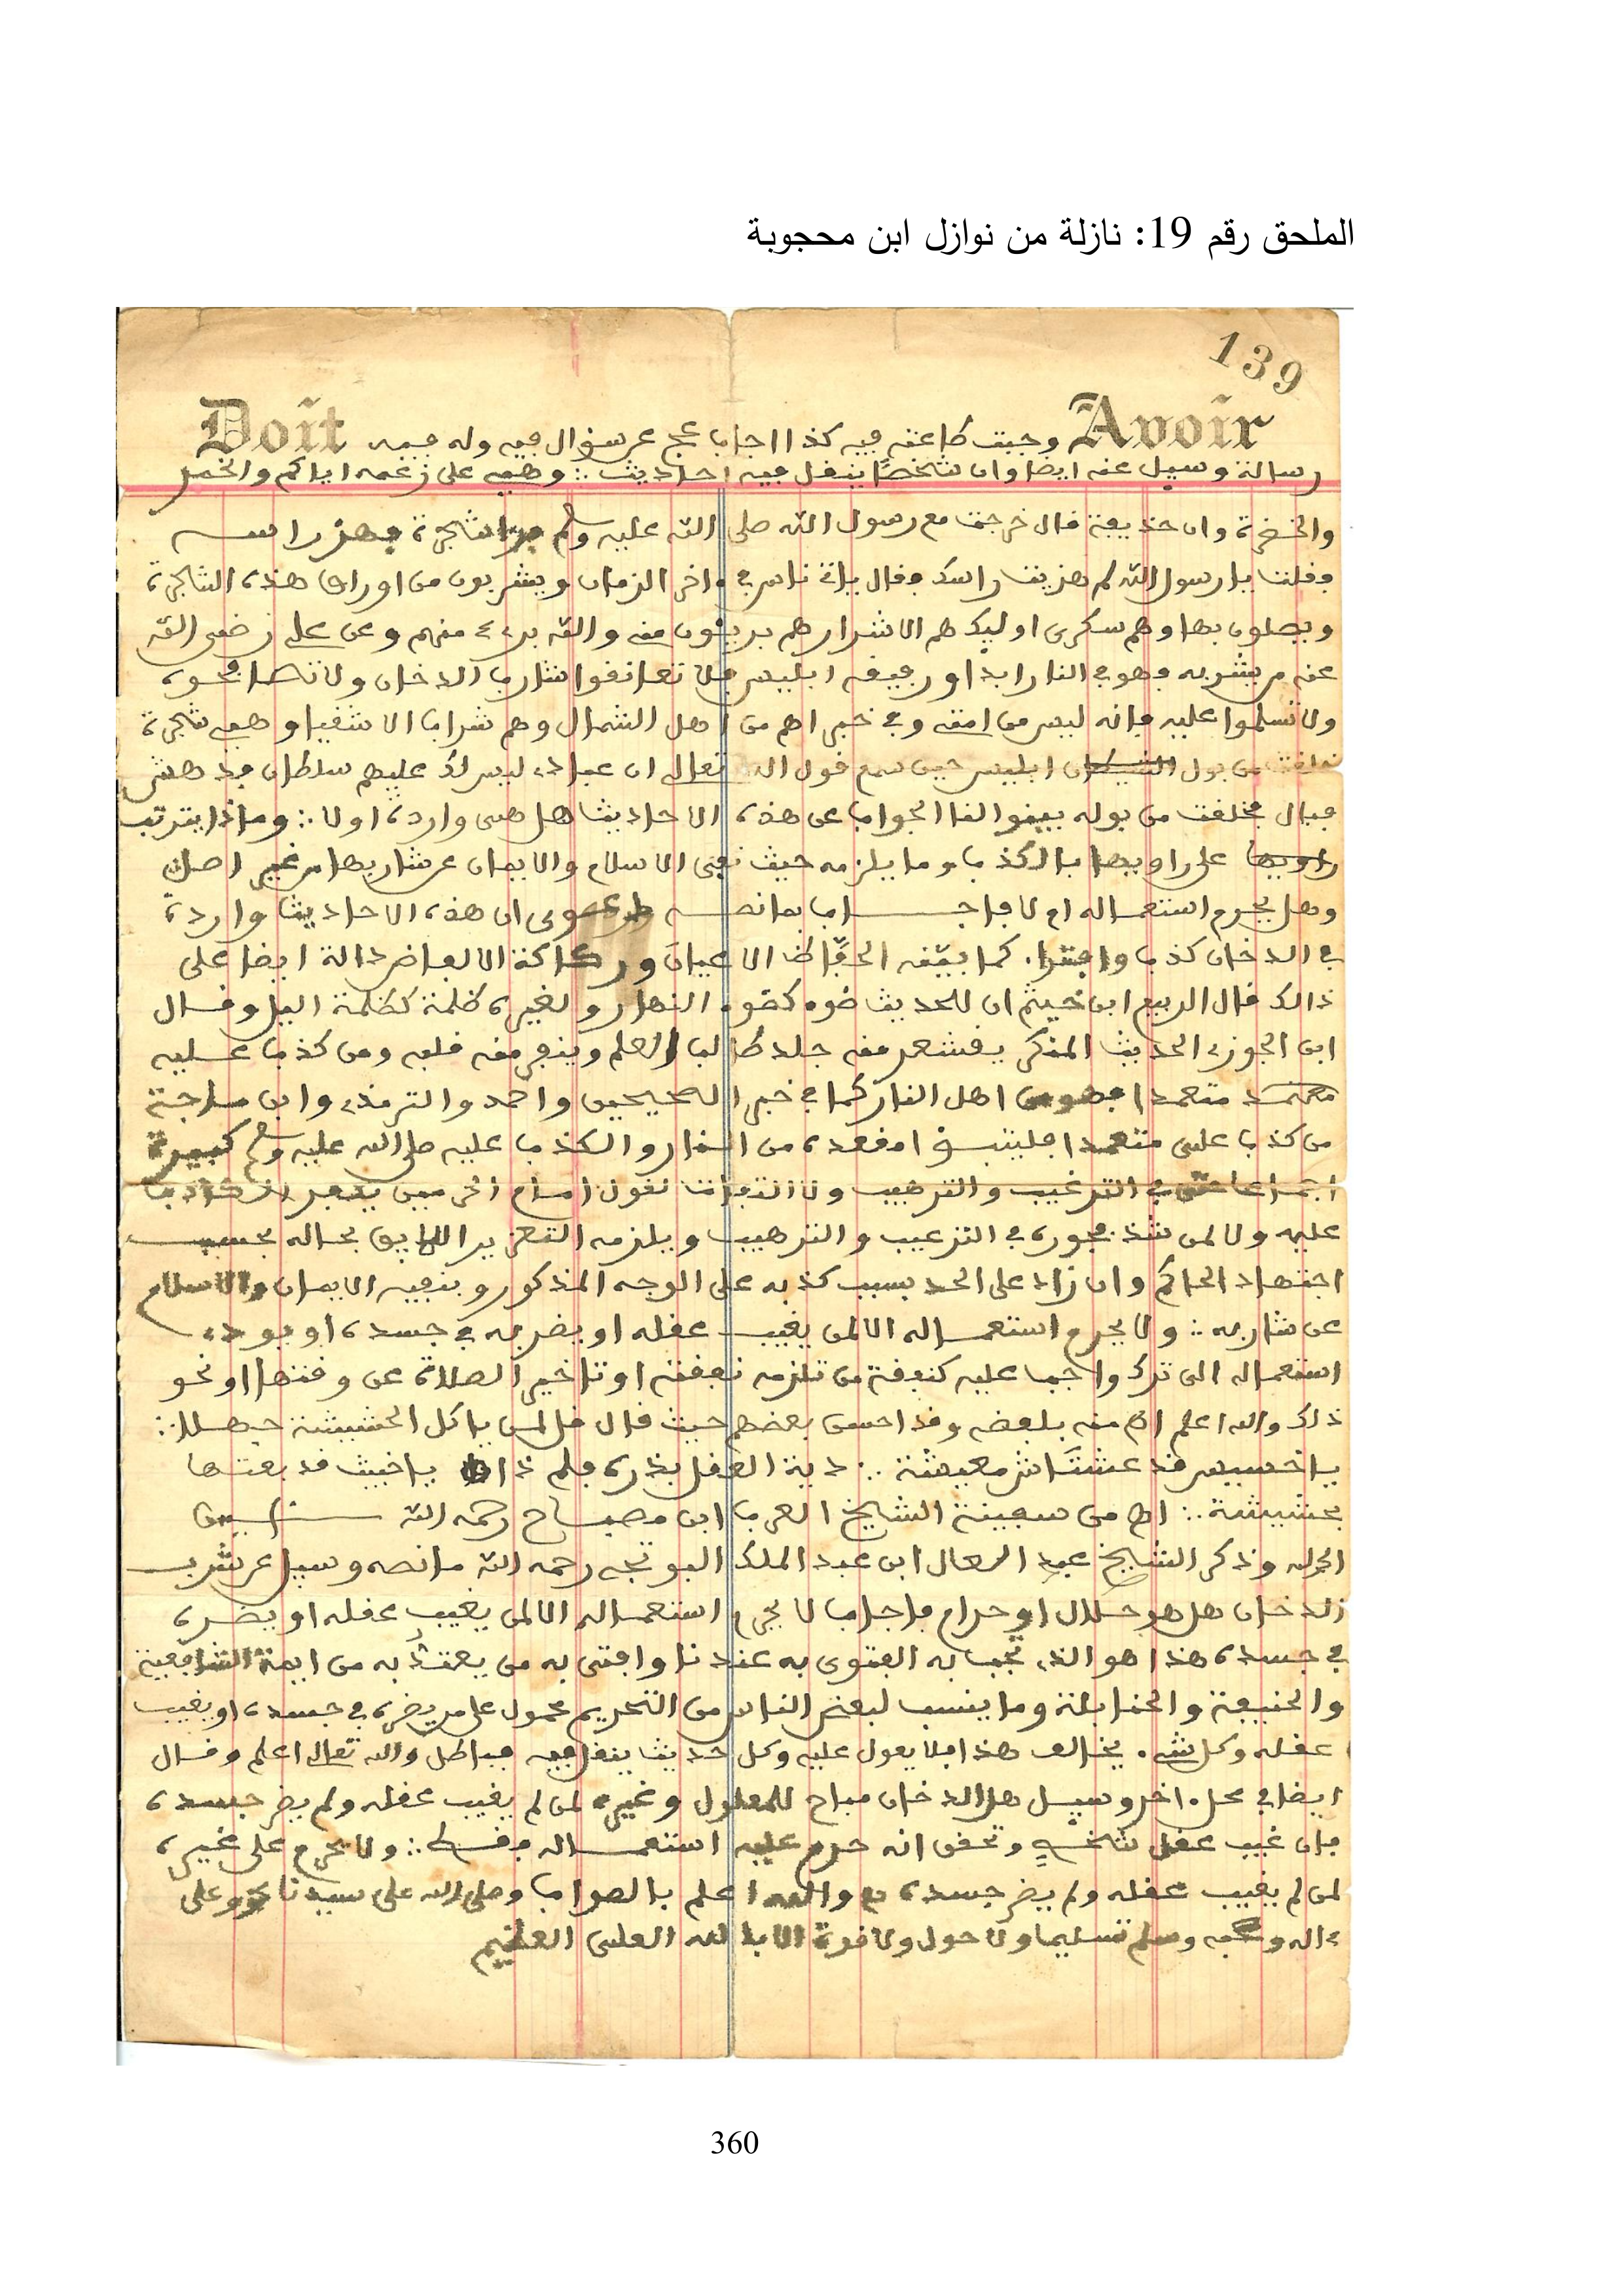 الملحق رقم 19: نازلة من نوازل ابن محجوبة
139
Doit Avoir
وجبت طاعته فيه كذا اجاب عج عن سؤال فيه وله فيه
رسالة وسيل عنه ايضا وان شخصًا ينقل فيه احاديث ∴ وهي على زعمه اياكم والخمر
والخضرة وان حذيفة قال خرجت مع رسول الله صلى الله عليه وسلم شجرة فهز راسه
فقلت يا رسول الله لم هزيت راسك فقال ياتي ناس في ءاخر الزمان ويشربون من اوراق هذه الشجرة
ويصلون بها وهم سكرى اوليك هم الاشرار هم بريئون مني والله بريء منهم وعن علي رضي الله
عنه من شربه فهو في النار ابدا ورفيقه ابليس فلا تعانقوا شارب الدخان ولا تصافحوه
ولا تسلموا عليه فانه ليس من امتي وفي خبر انهم من اهل الشمال وهم شراب الاشقيا وهي شجرة
خلقت من بول ابليس حين سمع قول الله تعالى ان عبادي ليس لك عليهم سلطان فدهش
فبال فخلقت من بوله بينوا لنا الجواب عن هذه الاحاديث هل هي واردة او لا ∴ وماذا يترتب
على راويها بالكذب وما يلزمه حيث نفى الاسلام والايمان عن شاربها من غير اصل
وهل يحرم استعماله ام لا فاجاب بما نصه دعوى ان هذه الاحاديث واردة
في الدخان كذب وافترا كما بينه الحفّاظ الاعيان وركاكة الالفاض دالة ايضا على
ذالك قال الربيع ابن خيثم ان للحديث ضوء كضوء النهار ولغيره ظلمة كظلمة اليل وقال
ابن الجوزي الحديث المنكر يقشعر منه جلد طالب العلم وينفر منه قلبه ومن كذب عليه
متعمدا فهو من اهل النار كما في خبر الصحيحين واحمد والترمذي وابن ماجة
من كذب علي متعمدا فليتبوا مقعده من النار والكذب عليه صلى الله عليه وسلم كبيرة
اجماعا حتى في الترغيب والترهيب ولا التفات لقول امام الحرمين بكفر الكاذب
عليه ولا لمن شذ فجوزه في الترغيب والترهيب ويلزمه التعزير اللايق بحاله بحسب
اجتهاد الحاكم وان زاد على الحد بسبب كذبه على الوجه المذكور ونفيه الايمان والاسلام
عن شاربه ∴ ولا يحرم استعماله الا لمن يغيب عقله او يضر به في جسده او يودي
استعماله الى ترك واجب عليه كنفقة من تلزمه نفقته او تاخير الصلاة عن وقتها او نحو
ذلك والله اعلم اه منه بلفضه وقد احسن بعضهم حيث قال قل لمن ياكل الحشيشة جهلا ∴
يا خسيس قد عشت شر معيشة ∴ دية العقل بدرة فلم ذا يا خبيث قد بعتها
بحشيشة ∴ اه من سفينة الشيخ العربي ابن مصباح رحمه الله
الحمد لله وذكر الشيخ عبد العال ابن عبد الملك البوتجي رحمه الله ما نصه وسيل عن شرب
الدخان هل هو حلال او حرام فاجاب لا يحرم استعماله الا لمن يغيب عقله او يضره
في جسده هذا هو الذي تجب به الفتوى به عندنا وافتى به من يعتد به من ايمة الشافعية
والحنفية والحنابلة وما ينسب لبعض الناس من التحريم محمول على من يضره في جسده او يغيب
عقله وكل شيء يخالف هذا فلا يعول عليه وكل حديث ينقل فيه فباطل والله تعالى اعلم وقال
ايضا في محل ءاخر وسيل هل الدخان مباح للمعلول وغيره لمن لم يغيب عقله ولم يضر جسده
فان غيب عقل شخص وتحقق انه حرم عليه استعماله فقط ∴ ولا يحرم على غيره
لمن لم يغيب عقله ولم يضر جسده والله اعلم بالصواب وصلى الله على سيدنا محمد وعلى
ءاله وصحبه وسلم تسليما ولا حول ولا قوة الا بالله العلي العظيم
360